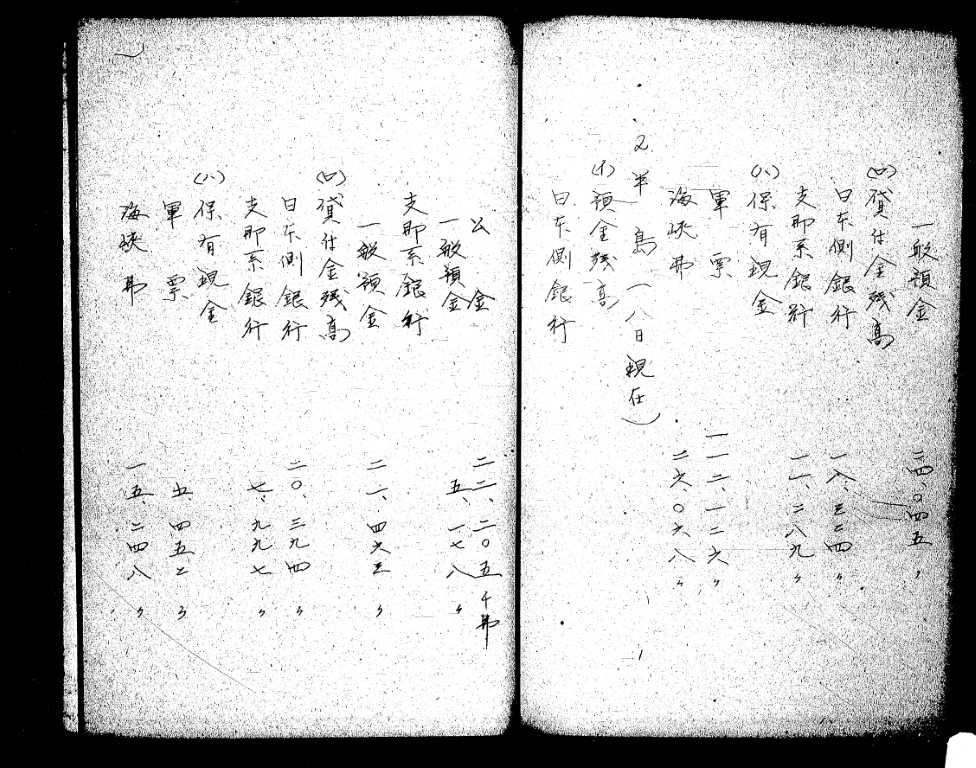 一般預金 三四、〇四五 〃
(ロ)貸付金残高
日本側銀行 一八、三二四 〃
支那系銀行 一一、二八九 〃
(ハ)保有現金
軍票 一一二、一二六 〃
海峡弗 二六、〇六八 〃
2 半島(一八日現在)
(イ)預金残高
日本側銀行
公金 二二、二〇五千弗
一般預金 五、一七八 〃
支那系銀行
一般預金 二一、四六三 〃
(ロ)貸付金残高
日本側銀行 二〇、三九四 〃
支那系銀行 七、九九七 〃
(ハ)保有現金
軍票 五、四五二 〃
海峡弗 一五、二四八 〃